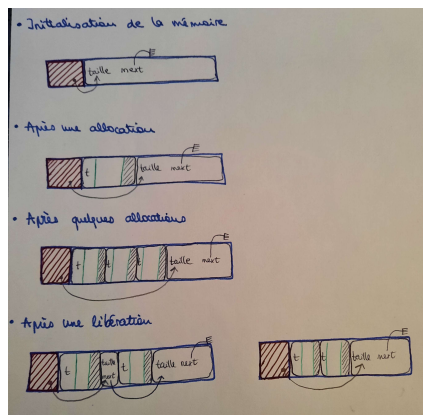 • Initialisation de la mémoire
taille next
• Après une allocation
t taille next
• Après quelques allocations
t t t taille next
• Après une libération
t taille next t taille next
t t taille next